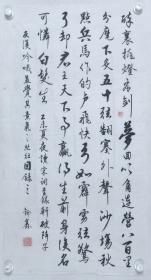 醉裏挑燈看劍夢回吹角連營八百里
分麾下炙五十弦翻塞外聲沙場秋
點兵馬作的盧飛快弓如霹靂弦驚
了卻君王天下事贏得生前身後名
可憐白髮生 夏夜 宋詞 破陣子